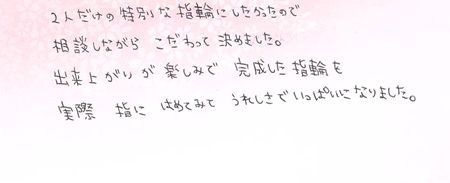 2人だけの特別な指輪にしたかったので
相談しながら こだわって決めました。
出来上がりが楽しみで 完成した指輪を
実際 指に はめてみて うれしさでいっぱいになりました。